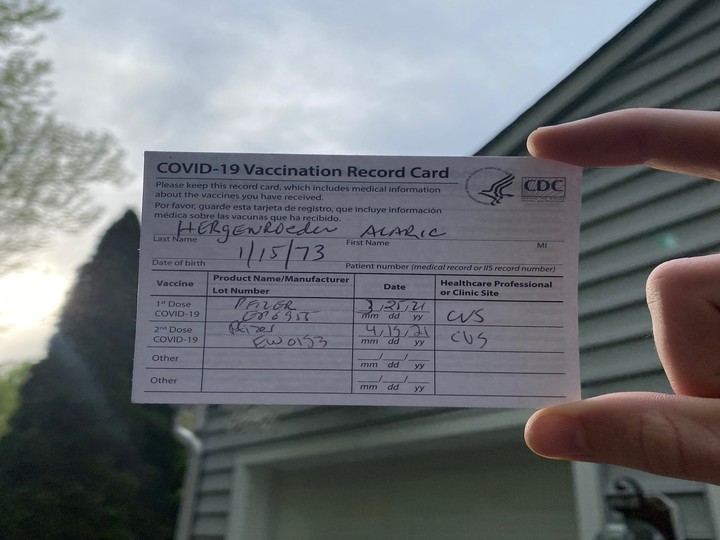 COVID-19 Vaccination Record Card
CDC
Please keep this record card, which includes medical information
about the vaccines you have received.
Por favor, guarde esta tarjeta de registro, que incluye información
médica sobre las vacunas que ha recibido.
HERgENROEDER ALARIC
Last Name First Name MI
1/15/73
Date of birth Patient number (medical record or IIS record number)
Vaccine Product Name/Manufacturer Date Healthcare Professional
Lot Number or Clinic Site
1st Dose PFIZER 3/25/21 CVS
COVID-19 mm dd yy
2nd Dose Pfizer 4/15/21 CVS
COVID-19 EW0153 mm dd yy
Other / /
mm dd yy
Other / /
mm dd yy